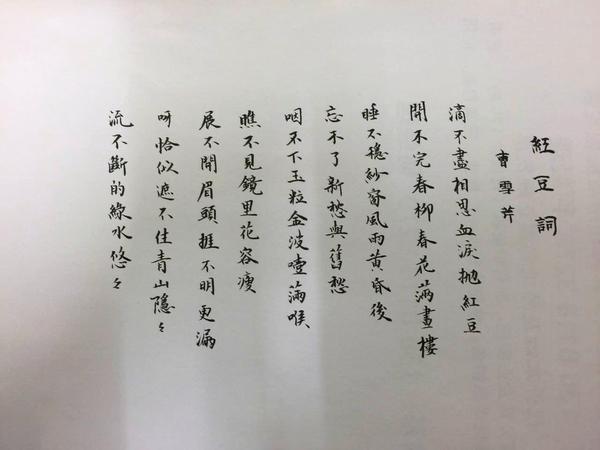 紅豆詞
曹雪芹
滴不盡相思血淚拋紅豆
開不完春柳春花滿畫樓
睡不穩紗窗風雨黃昏後
忘不了新愁與舊愁
咽不下玉粒金波噎滿喉
瞧不見鏡里花容瘦
展不開眉頭捱不明更漏
呀恰似遮不住青山隱々
流不斷的綠水悠々